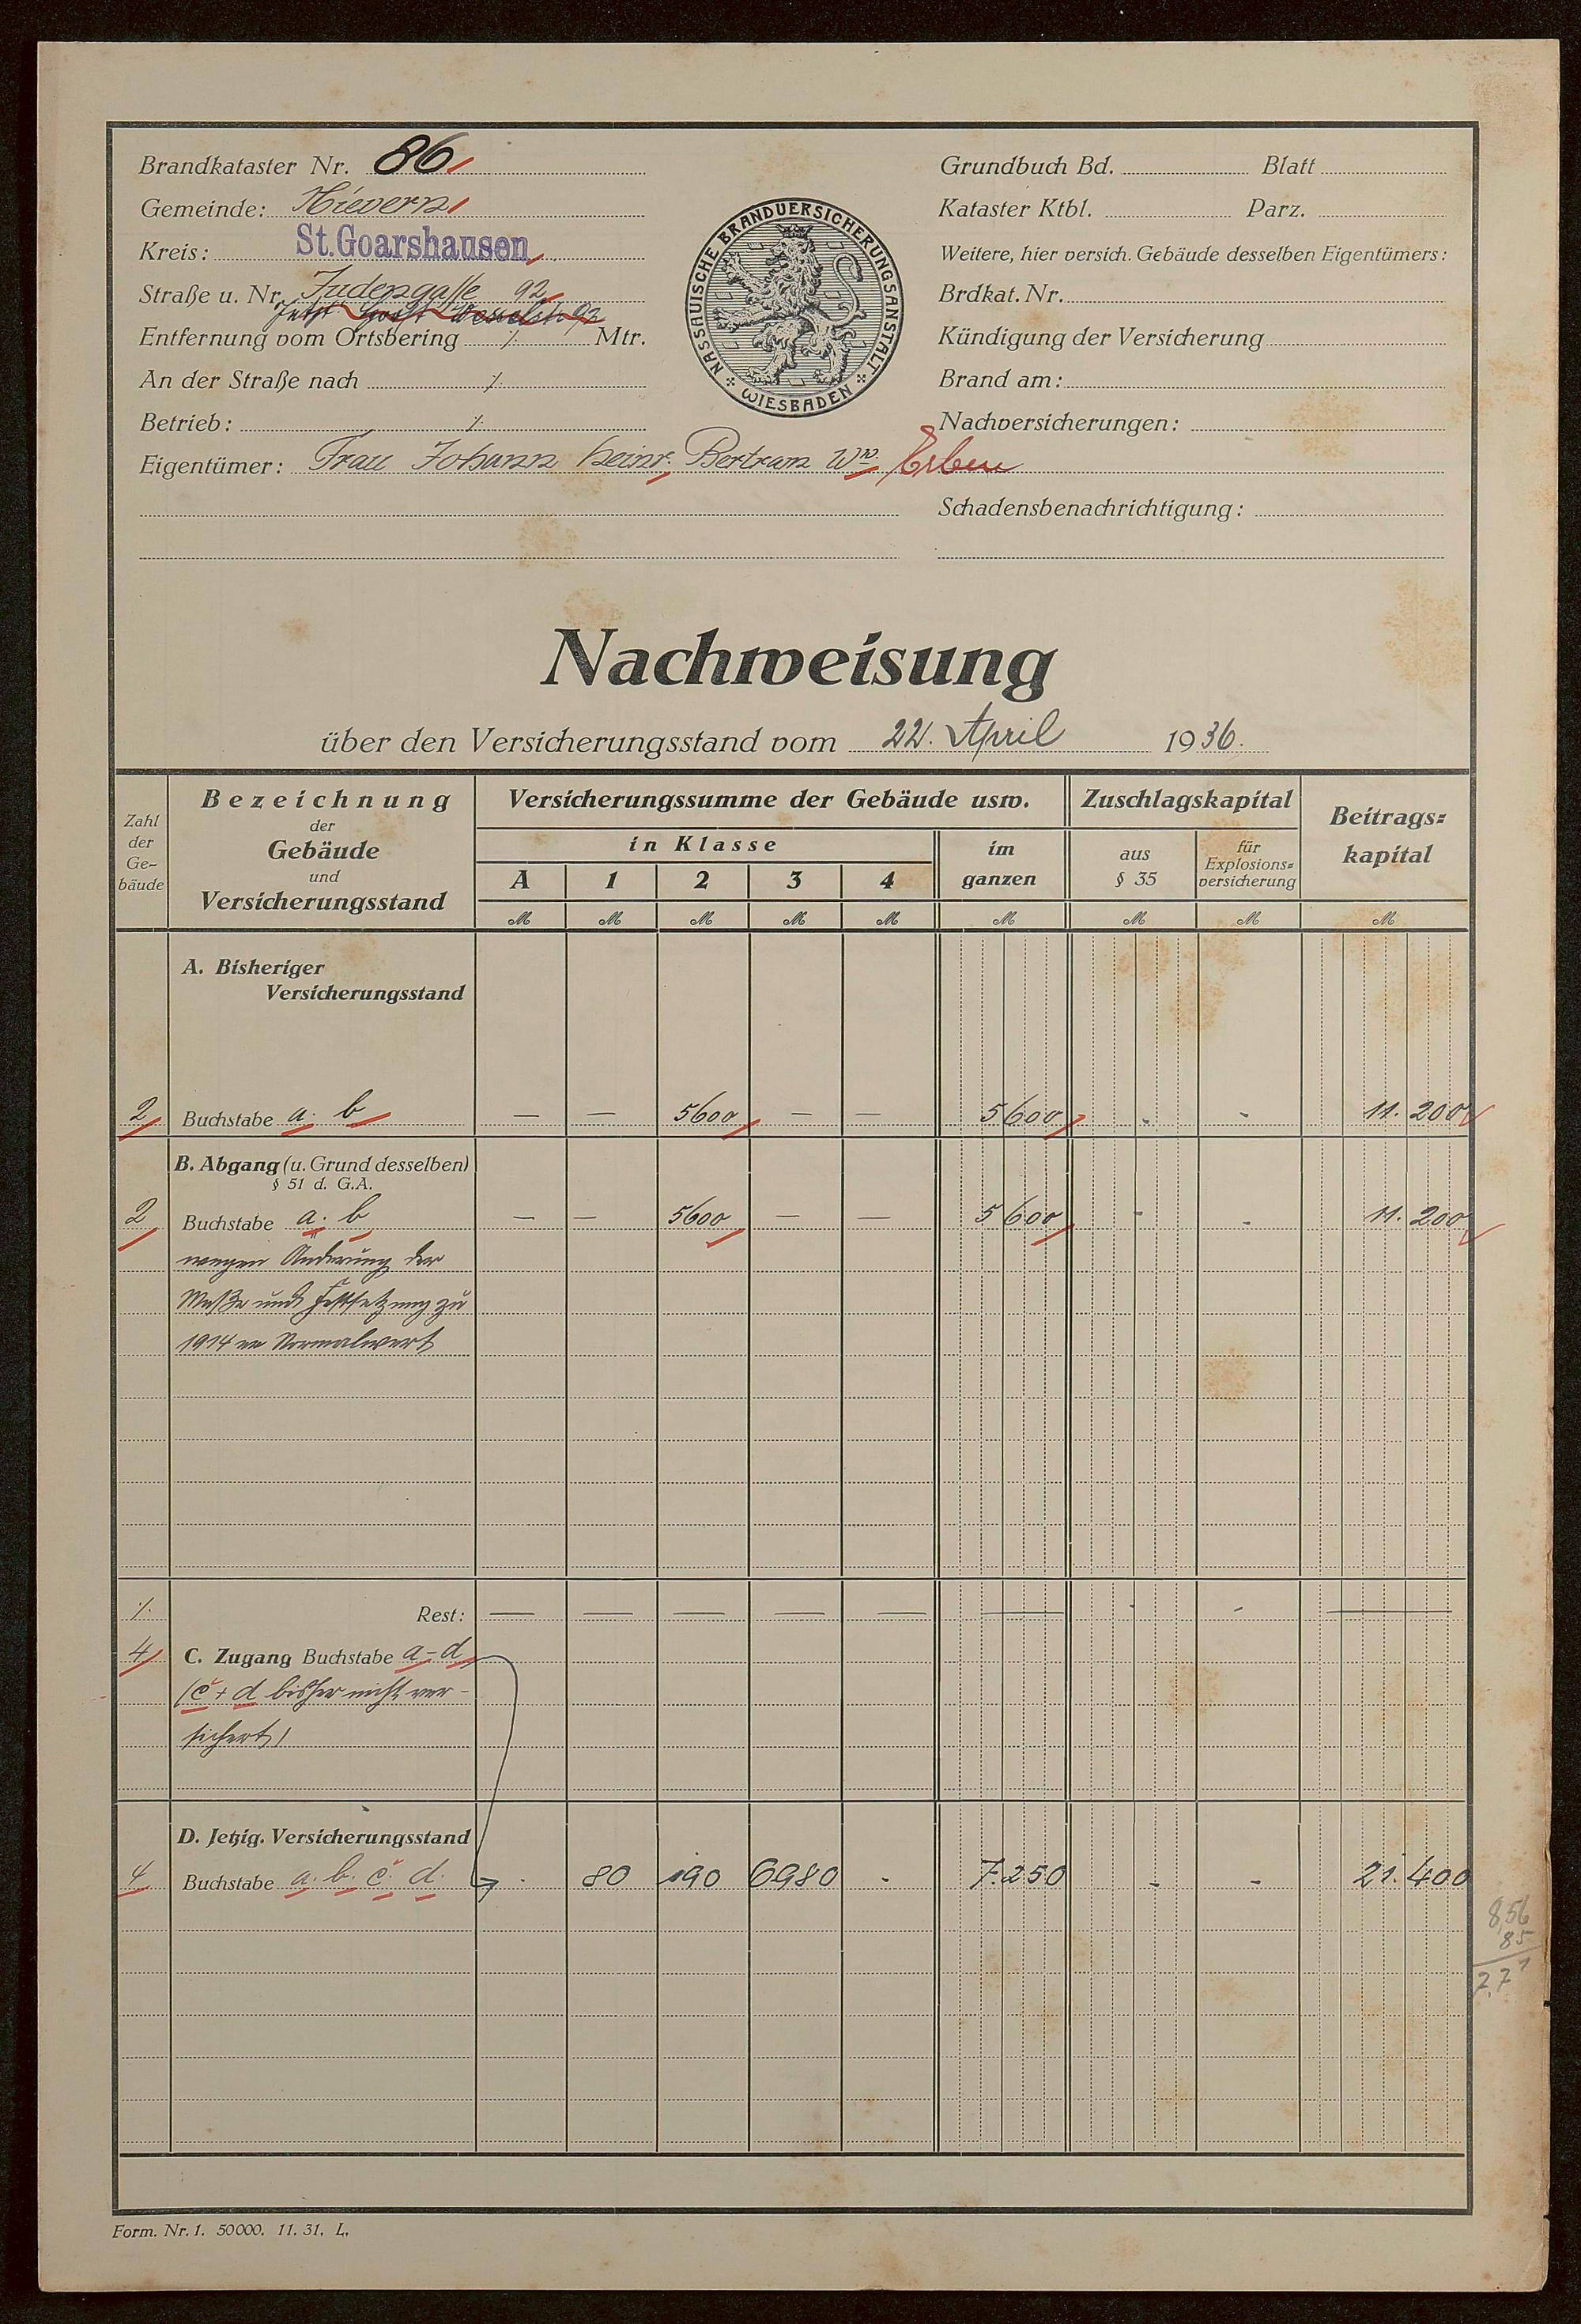 Brandkataster Nr. 86
Gemeinde: Nievern
Kreis: St. Goarshausen
Straße u. Nr. Judengasse 92
Jetzt Horst Wesselstr. 92
Entfernung vom Ortsbering ./. Mtr.
An der Straße nach ./.
Betrieb: ./.
Eigentümer: Frau Johann Heinr. Bertram Ww. Erben
NASSAUISCHE BRANDVERSICHERUNGSANSTALT
WIESBADEN
Grundbuch Bd. Blatt
Kataster Ktbl. Parz.
Weitere, hier versich. Gebäude desselben Eigentümers:
Brdkat. Nr.
Kündigung der Versicherung
Brand am:
Nachversicherungen:
Schadensbenachrichtigung:
Nachweisung
über den Versicherungsstand vom 22. April 1936.
Zahl der Ge-bäude
Bezeichnung der Gebäude und Versicherungsstand
Versicherungssumme der Gebäude usw.
Zuschlagskapital
Beitrags=kapital
in Klasse
im ganzen
aus § 35
für Explosions=versicherung
A 1 2 3 4
M M M M M M M M M
A. Bisheriger
Versicherungsstand
2 Buchstabe a. b — — 5600 — — 5600 - - 11.200
B. Abgang (u. Grund desselben)
§ 51 d. G.A.
2 Buchstabe a. b — — 5600 — — 5600 - - 11.200
wegen Änderung der
Maße und Festsetzung zu
1914er Normalwert
./. Rest: — — — — — — - - —
4 C. Zugang Buchstabe a-d
(c + d bisher nicht ver-
sichert)
D. Jetzig. Versicherungsstand
4 Buchstabe a. b. c. d. . 80 190 6980 - 7.250 - - 21.400
8,56
85
7,71
Form. Nr. 1. 50000. 11. 31. L.